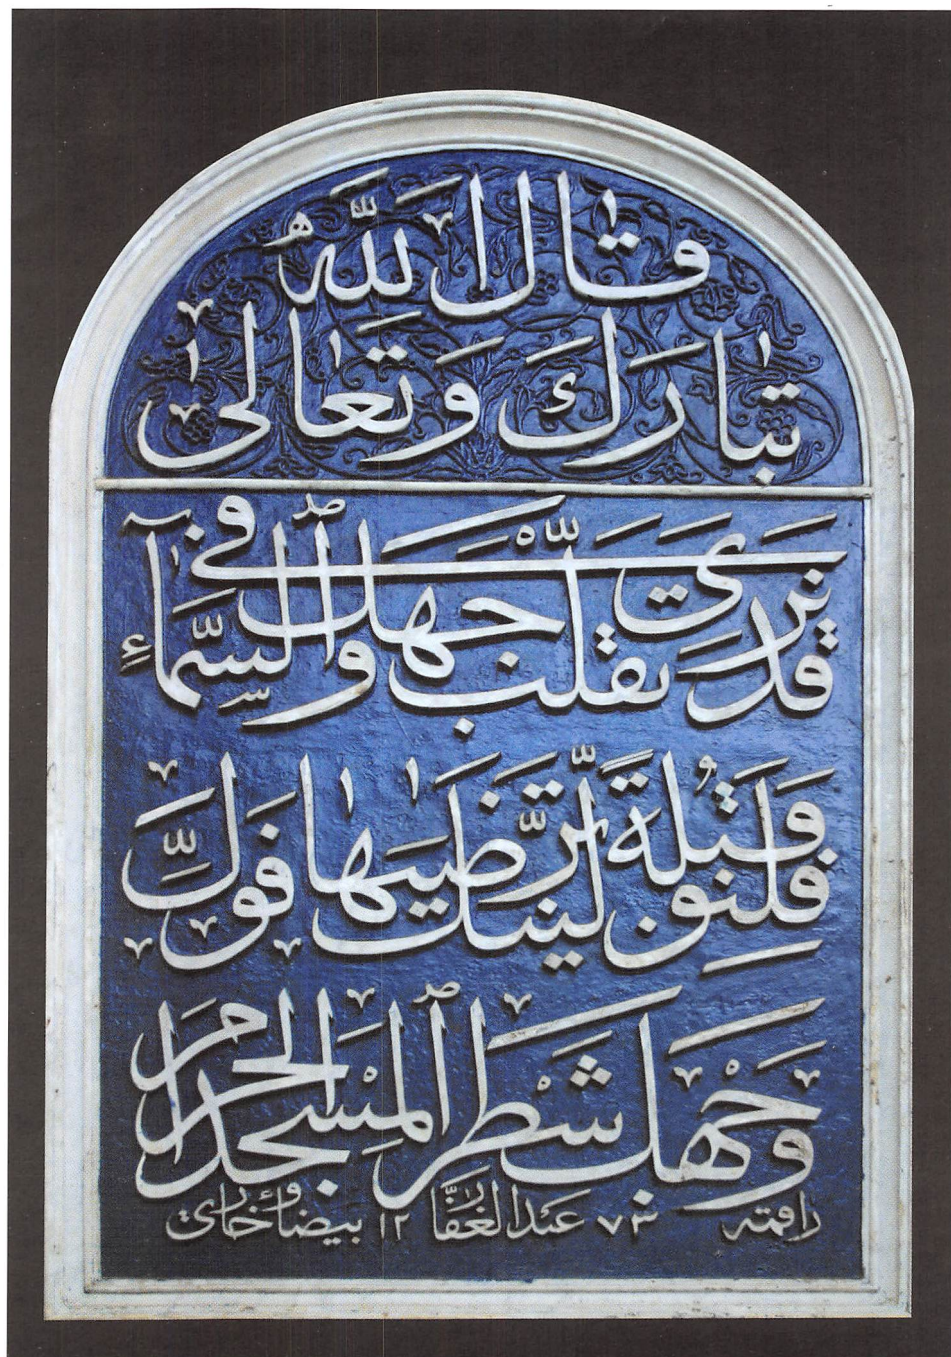 قَالَ اللّٰهُ
تَبَارَكَ وَتَعَالٰى
قَدْ نَرٰى تَقَلُّبَ وَجْهِكَ فِي السَّمَاءِ
فَلَنُوَلِّيَنَّكَ قِبْلَةً تَرْضٰيهَا فَوَلِّ
وَجْهَكَ شَطْرَ الْمَسْجِدِ الْحَرَامِ
راقمه عبد الغفار بيضا خاوري ١٢٧٣